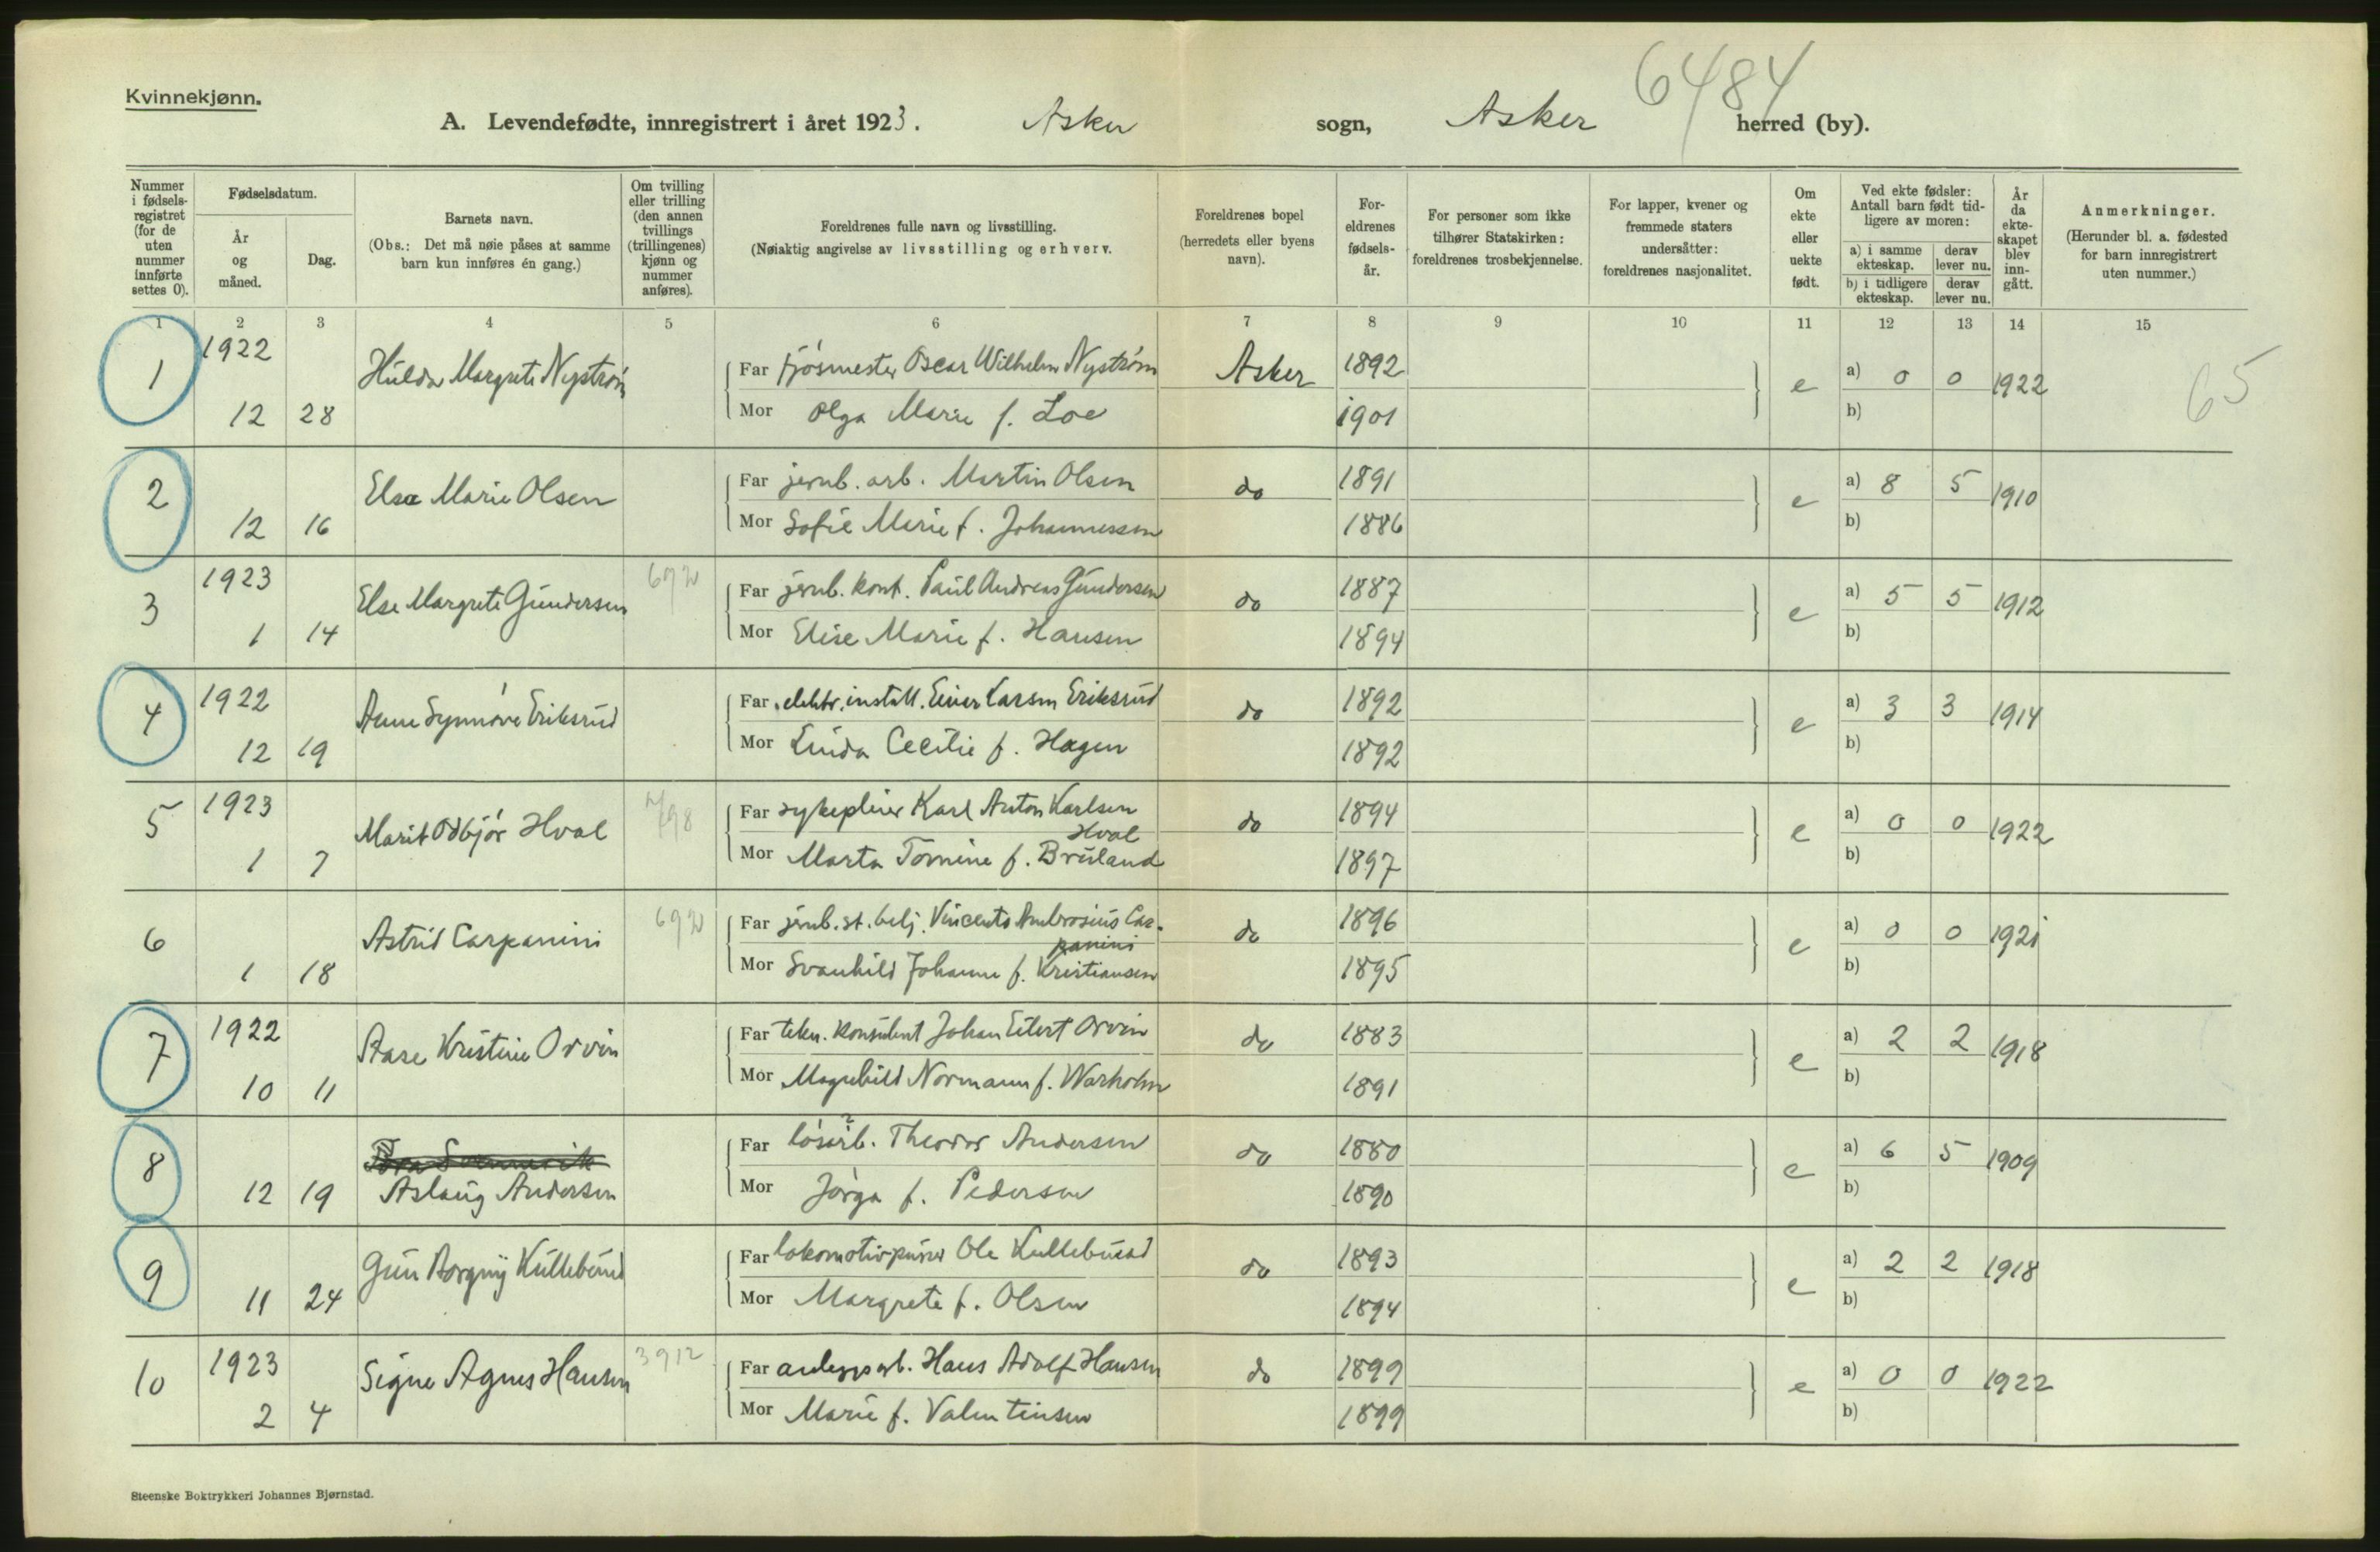 6484
Kvinnekjønn.
A. Levendefødte, innregistrert i året 1923. Asker sogn, Asker herred (by).
Nummer i fødselsregistret (for de uten nummer innførte settes 0).
Fødselsdatum.
År og måned.
Dag.
Barnets navn.
(Obs.: Det må nøie påses at samme barn kun innføres én gang.)
Om tvilling eller trilling (den annen tvillings (trillingenes) kjønn og nummer anføres).
Foreldrenes fulle navn og livsstilling.
(Nøiaktig angivelse av livsstilling og erhverv.
Foreldrenes bopel (herredets eller byens navn).
Foreldrenes fødselsår.
For personer som ikke tilhører Statskirken: foreldrenes trosbekjennelse.
For lapper, kvener og fremmede staters undersåtter: foreldrenes nasjonalitet.
Om ekte eller uekte født.
Ved ekte fødsler: Antall barn født tidligere av moren:
a) i samme ekteskap.
derav lever nu.
b) i tidligere ekteskap.
derav lever nu.
År da ekteskapet blev inngått.
Anmerkninger.
(Herunder bl. a. fødested for barn innregistrert uten nummer.)
1 2 3 4 5 6 7 8 9 10 11 12 13 14 15
1 1922 12 28 Hulda Margrete Nystrøm
Far fjøsmester Oscar Wilhelm Nystrøm Asker 1892 e a) 0 0 1922 65
Mor Olga Marie f. Loe 1901 b)
2 12 16 Else Marie Olsen
Far jernb. arb. Martin Olsen do 1891 e a) 8 5 1910
Mor Sofie Marie f. Johannessen 1886 b)
3 1923 1 14 Else Margrete Gundersen
Far jernb. kont. Paul Andreas Gundersen do 1887 e a) 5 5 1912
Mor Elise Marie f. Hansen 1894 b)
4 1922 12 19 Anne Synnøve Eriksrud
Far elektr. install. Einer Larsen Eriksrud do 1892 e a) 3 3 1914
Mor Linda Cecilie f. Hagen 1892 b)
5 1923 1 7 Marit Odbjør Hval
Far sykepleier Karl Anton Karlsen Hval do 1894 e a) 0 0 1922
Mor Marta Tomine f. Bruland 1897 b)
6 1 18 Astrid Carpanini 692
Far jernb. st. betj. Vincents Ambrosius Carpanini do 1896 e a) 0 0 1921
Mor Svanhild Johanne f. Kristiansen 1895 b)
7 1922 10 11 Aase Kristine Orvin
Far tekn. konsulent Johan Eilert Orvin do 1883 e a) 2 2 1918
Mor Magnhild Normann f. Warholm 1891 b)
8 12 19 Aslaug Andersen
Far løsarb. Theodor Andersen do 1880 e a) 6 5 1909
Mor Jørga f. Pedersen 1890 b)
9 11 24 Gun Borgny Kullebund
Far lokomotivpusser Ole Kullebund do 1893 e a) 2 2 1918
Mor Margrete f. Olsen 1894 b)
10 1923 2 4 Signe Agnes Hansen 3912
Far anleggsarb. Hans Adolf Hansen do 1899 e a) 0 0 1922
Mor Marie f. Valentinsen 1899 b)
Steenske Boktrykkeri Johannes Bjørnstad.